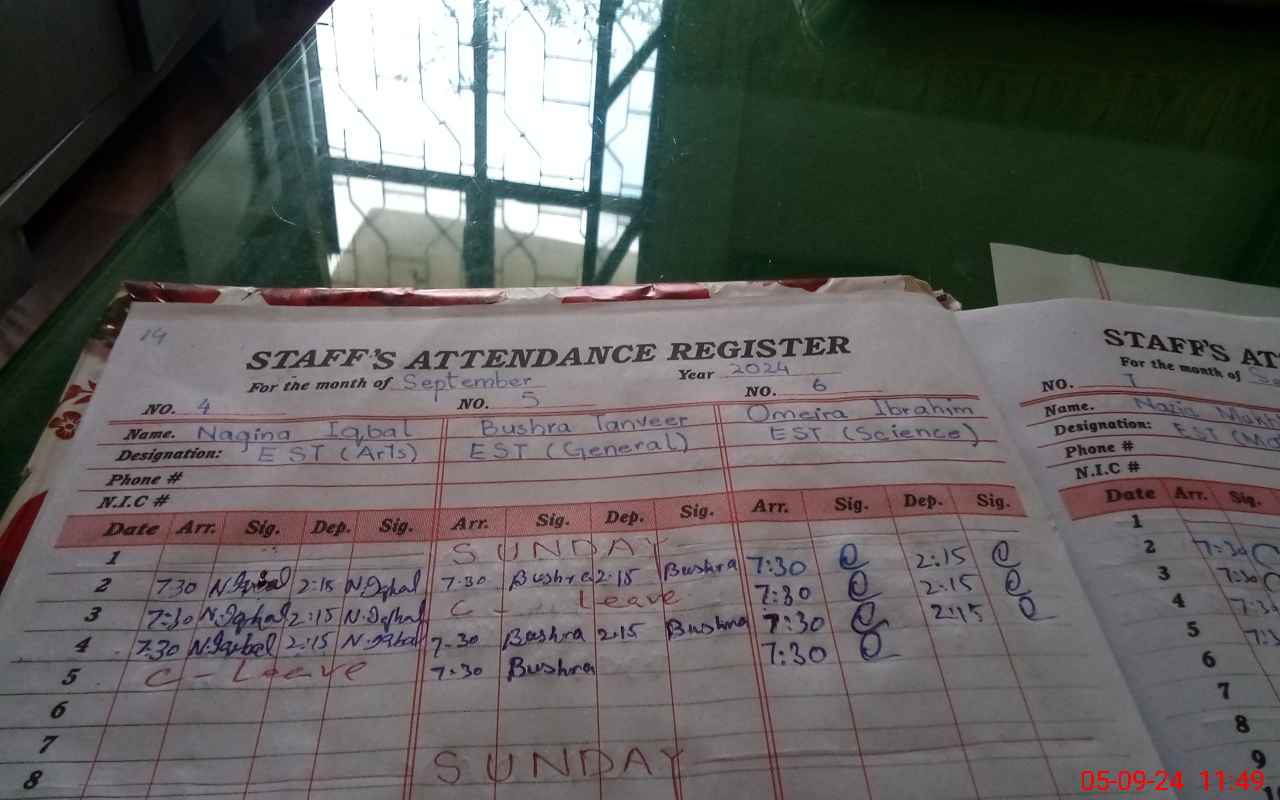 14
STAFF'S ATTENDANCE REGISTER
For the month of September Year 2024
NO. 4 NO. 5 NO. 6
Name. Nagina Iqbal Bushra Tanveer Omeira Ibrahim
Designation: EST (Arts) EST (General) EST (Science)
Phone #
N.I.C #
Date Arr. Sig. Dep. Sig. Arr. Sig. Dep. Sig. Arr. Sig. Dep. Sig.
1 SUNDAY
2 7:30 N.Iqbal 2:15 N.Iqbal 7:30 Bushra 2:15 Bushra 7:30 2:15
3 7:30 N.Iqbal 2:15 N.Iqbal C - Leave 7:30 2:15
4 7:30 N.Iqbal 2:15 N.Iqbal 7:30 Bushra 2:15 Bushra 7:30 2:15
5 C - Leave 7:30 Bushra 7:30
6
7
8 SUNDAY
STAFF'S AT
For the month of Se
NO. 7
Name. Nazia
Designation: EST
Phone #
N.I.C #
Date Arr. Sig.
1
2 7:30
3 7:30
4 7:30
5 7:3
6
7
8
9
10
05-09-24 11:49